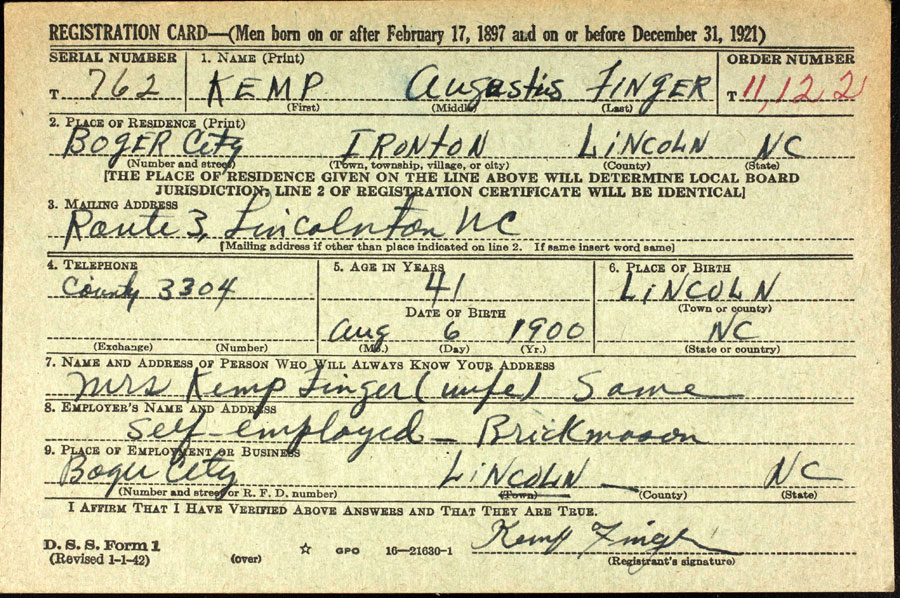 REGISTRATION CARD—(Men born on or after February 17, 1897 and on or before December 31, 1921)
SERIAL NUMBER 1. NAME (Print) ORDER NUMBER
T 762 KEMP Augustis FINGER T 11,122
(First) (Middle) (Last)
2. PLACE OF RESIDENCE (Print)
BOGER City IRONTON LINCOLN NC
(Number and street) (Town, township, village, or city) (County) (State)
[THE PLACE OF RESIDENCE GIVEN ON THE LINE ABOVE WILL DETERMINE LOCAL BOARD
JURISDICTION; LINE 2 OF REGISTRATION CERTIFICATE WILL BE IDENTICAL]
3. MAILING ADDRESS
Route 3, Lincolnton NC
[Mailing address if other than place indicated on line 2. If same insert word same]
4. TELEPHONE 5. AGE IN YEARS 6. PLACE OF BIRTH
County 3304 41 LINCOLN
DATE OF BIRTH (Town or county)
Aug 6 1900 NC
(Exchange) (Number) (Mo.) (Day) (Yr.) (State or country)
7. NAME AND ADDRESS OF PERSON WHO WILL ALWAYS KNOW YOUR ADDRESS
Mrs Kemp Finger (wife) Same
8. EMPLOYER'S NAME AND ADDRESS
Self-employed - Brickmason
9. PLACE OF EMPLOYMENT OR BUSINESS
Boger City LINCOLN NC
(Number and street or R. F. D. number) (Town) (County) (State)
I AFFIRM THAT I HAVE VERIFIED ABOVE ANSWERS AND THAT THEY ARE TRUE.
Kemp Finger
D. S. S. Form 1
(Revised 1-1-42) (over) ☆ GPO 16—21630-1 (Registrant's signature)